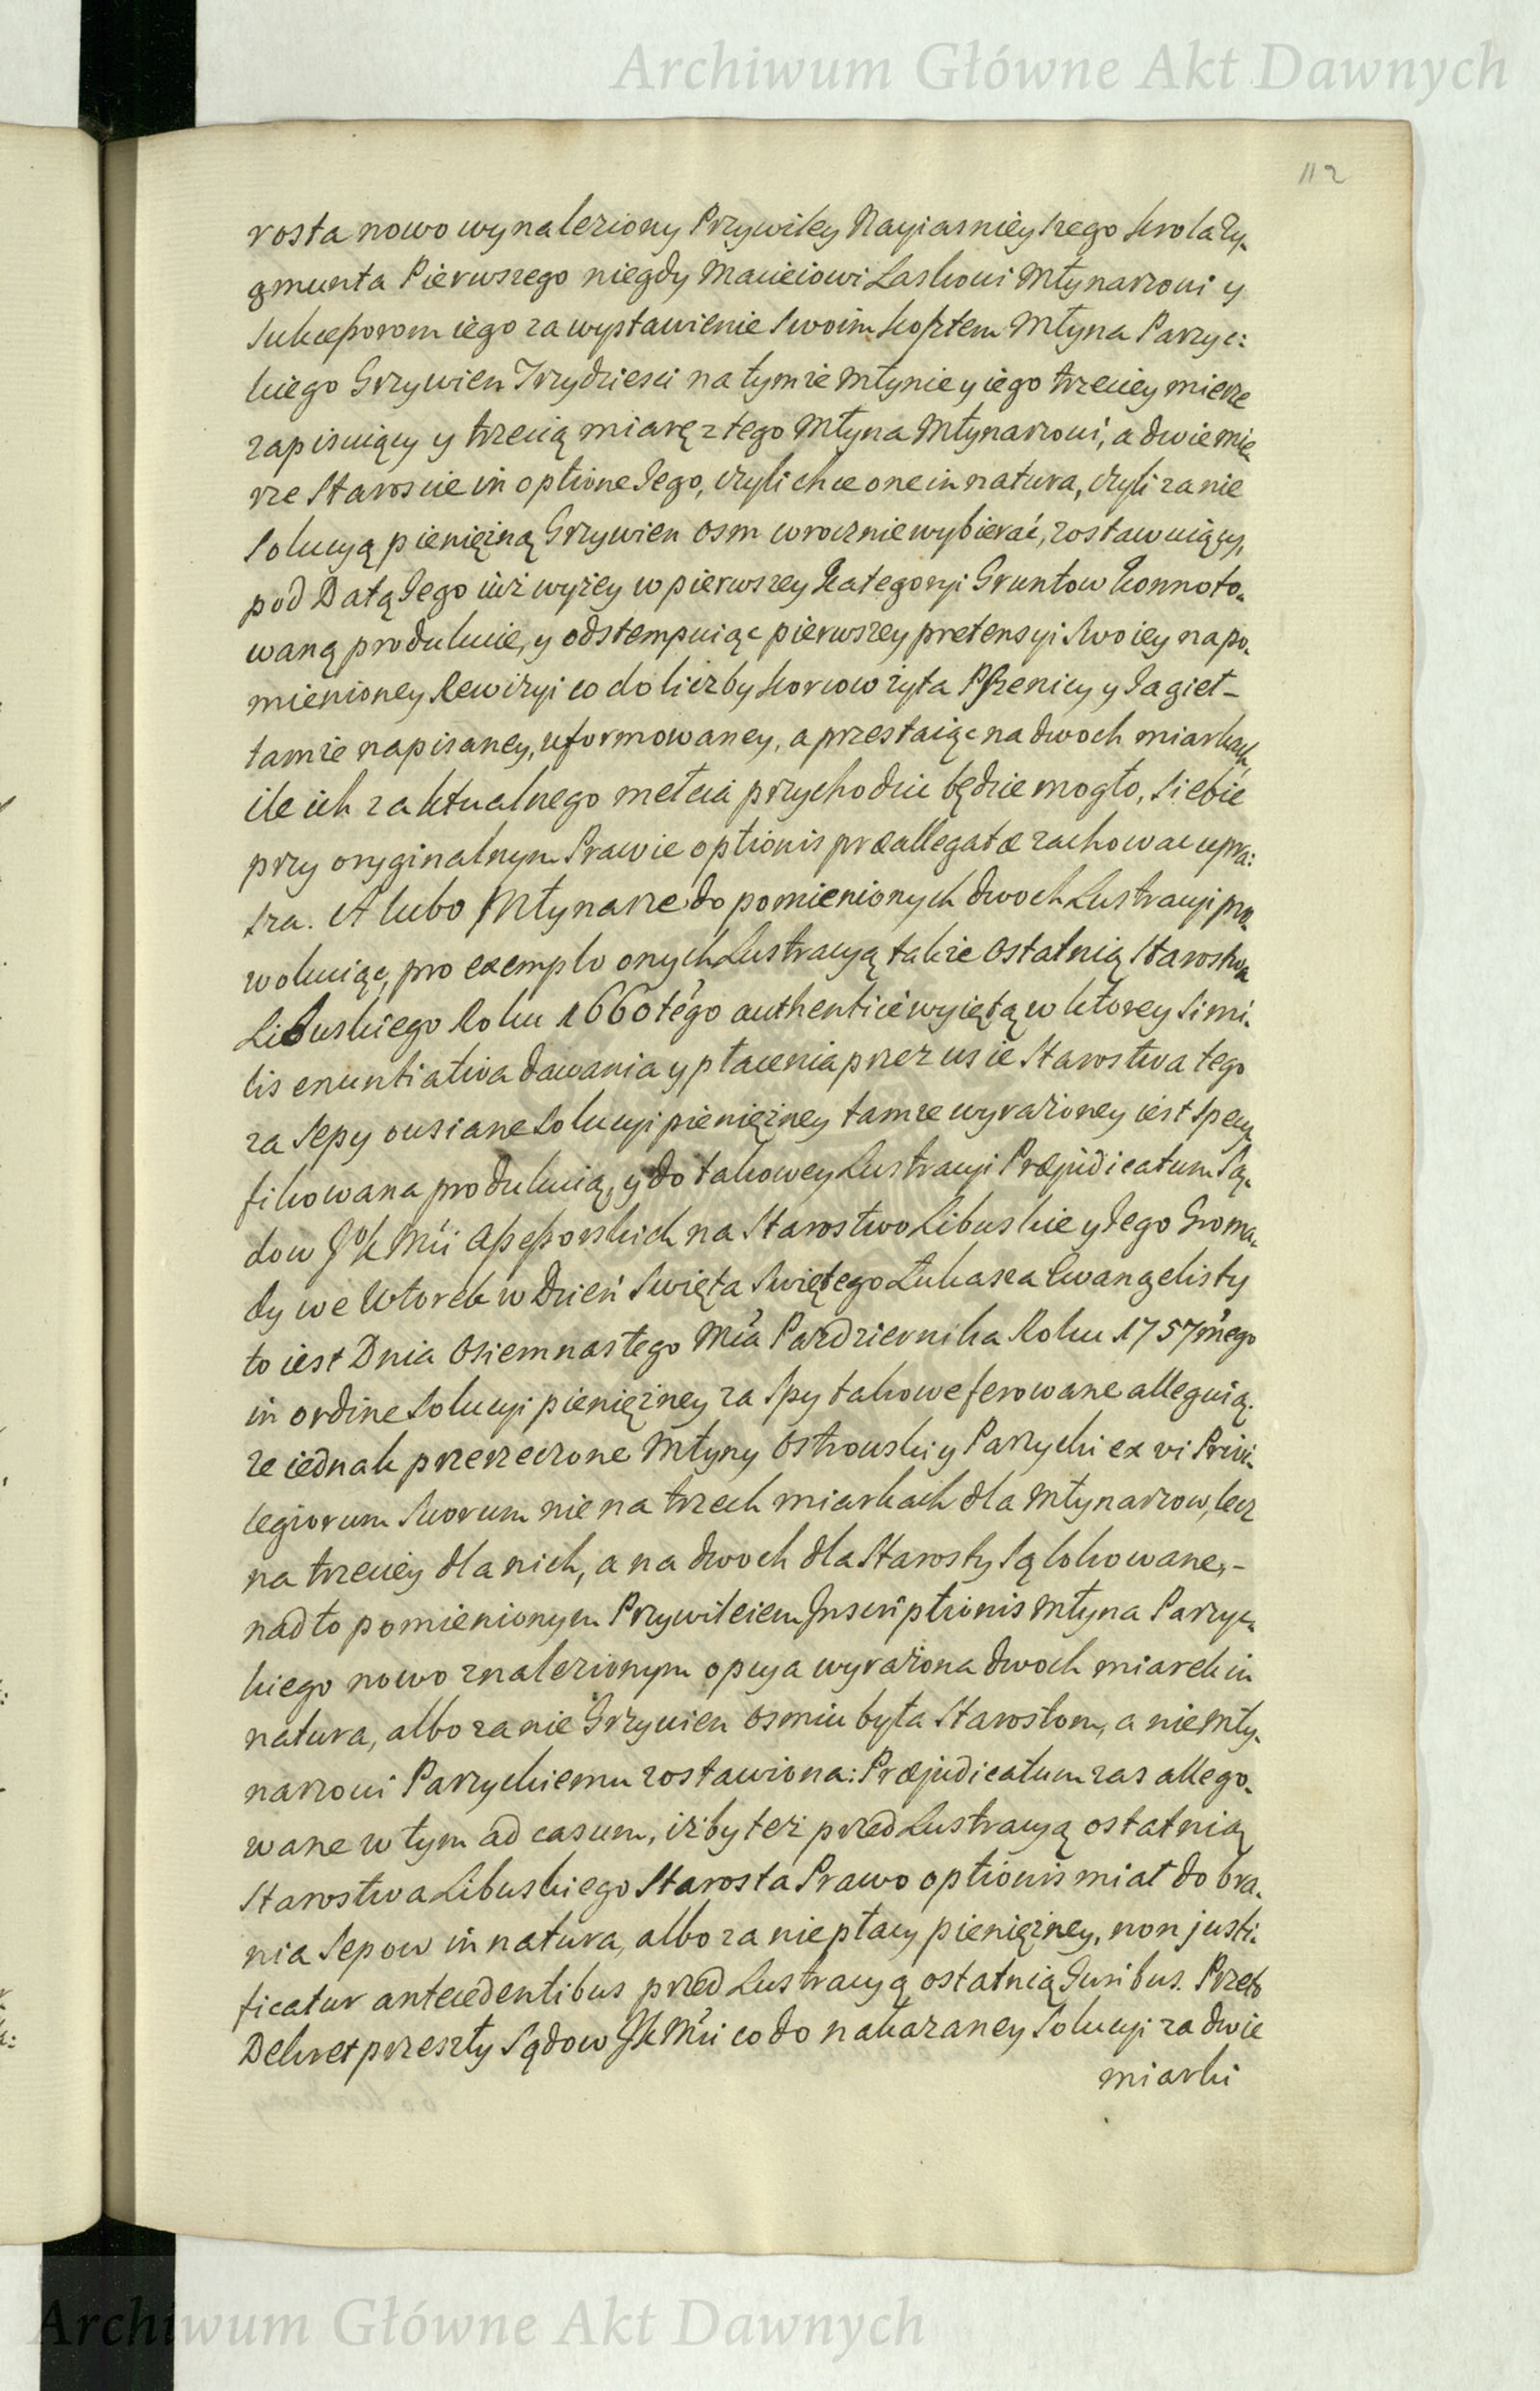 Archiwum Główne Akt Dawnych
112
rosta nowo wynaleziony Przywiley Nayiasnieyszego Krola Zy-
gmunta Pierwszego niegdy Macieiowi Laskowi Młynarzowi y
Sukcessorom iego za wystawienie Swoim kosztem Młyna Parzyc:
kiego Grzywien Trzydziesci na tymze Młynie y iego trzeciey mierze
zapisuiący y trzecią miarę z tego Młyna Młynarzowi, a dwie mie
rze Staroscie in optione Jego, czyli chce one in natura, czyli za nie
Solucyą pieniężną Grzywien osm corocznie wybierać, zostawuiący,
pod Datą Jego iuż wyżey w pierwszey Kategoryi Gruntow Konnoto-
waną produkuie, y odstempuiąc pierwszey pretensyi Swoiey na po-
mienioney Rewizyi co do liczby korcow żyta Pszenicy y Jagieł –
tamże napisaney, uformowaney, a przestaiąc na dwoch miarkach,
ile ich z aktualnego mełcia przychodzic będzie mogło, Siebie
przy oryginalnym Prawie optionis præallegatæ zachowac upra:
sza. A lubo Młynarze do pomienionych dwoch Lustracyi pro-
wokuiąc, pro exemplo onych Lustracyą także ostatnią Starostwa
Libuskiego Roku 1660tego authentice wyiętą w ktorey Simi-
lis enuntiativa dawania y płacenia przez wsie Starostwa tego
za Sepy owsiane Solucyi pieniężney tamże wyrażoney iest Specy
fikowana produkuią, y do takowey Lustracyi Præjudicatum Są-
dow JoKMći Assessorskich na Starostwo Libuskie y Jego Groma-
dy we Wtorek w Dzień Swięta Swiętego Łukasza Ewangelisty
to iest Dnia Osiemnastego Mca Pazdziernika Roku 1757mego
in ordine Solucyi pieniężney za Spy takowe ferowane alleguią.
że iednak przerzeczone Młyny Ostrowski y Parzycki ex vi Privi-
legiorum Suorum nie na trzech miarkach dla Młynarzow, lecz
na trzeciey dla nich, a na dwoch dla Starosty Są lokowane, –
nadto pomienionym Przywileiem Inscriptionis Młyna Parzyc-
kiego nowo znalezionym opcya wyrażona dwoch miarek in
natura, albo za nie Grzywien osmiu była Starostom, a nie Mły-
narzowi Parzyckiemu zostawiona: Præjudicatum zas allego-
wane w tym ad casum, iżby też przed Lustracyą ostatnią
Starostwa Libuskiego Starosta Prawo optionis miał do bra-
nia Sepow in natura, albo za nie płacy pieniężney, non justi-
ficatur antecedentibus przed Lustracyą ostatnią Juribus. Przeto
Dekret przeszły Sądow JKMći co do nakazaney Solucyi za dwie
miarki
Archiwum Główne Akt Dawnych